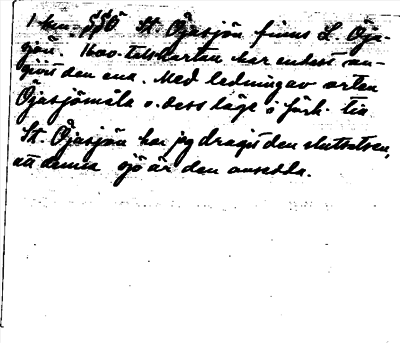 1 km. SSÖ St. Öjasjön finns L. Öja-
sjön. 1600-talskartan har endast an-
givit den ena. Med ledning av orten
Öjasjömåla o. dess läge i förh. till
St. Öjasjön har jag dragit den slutsatsen,
att denna sjö är den avsedda.